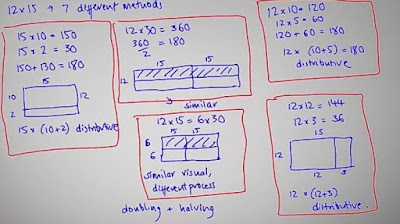 12 x 15 → 7 different methods
15 x 10 = 150
15 x 2 = 30
150 + 130 = 180
15
10
12
2
15 x (10+2) distributive
12 x 30 = 360
360
2
= 180
15
15
12
similar
12 x 15 = 6 x 30
15
15
6
6
similar visual,
different process
doubling + halving
12 x 10 = 120
12 x 5 = 60
120 + 60 = 180
12 x (10+5) = 180
distributive
12 x 12 = 144
12 x 3 = 36
15
12
12
3
12 x (12+3)
distributive.